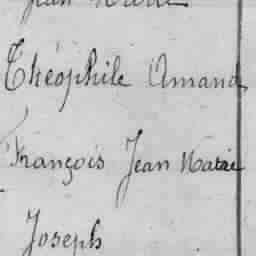 Jean Marie
Théophile Amand
François Jean Marie
Joseph